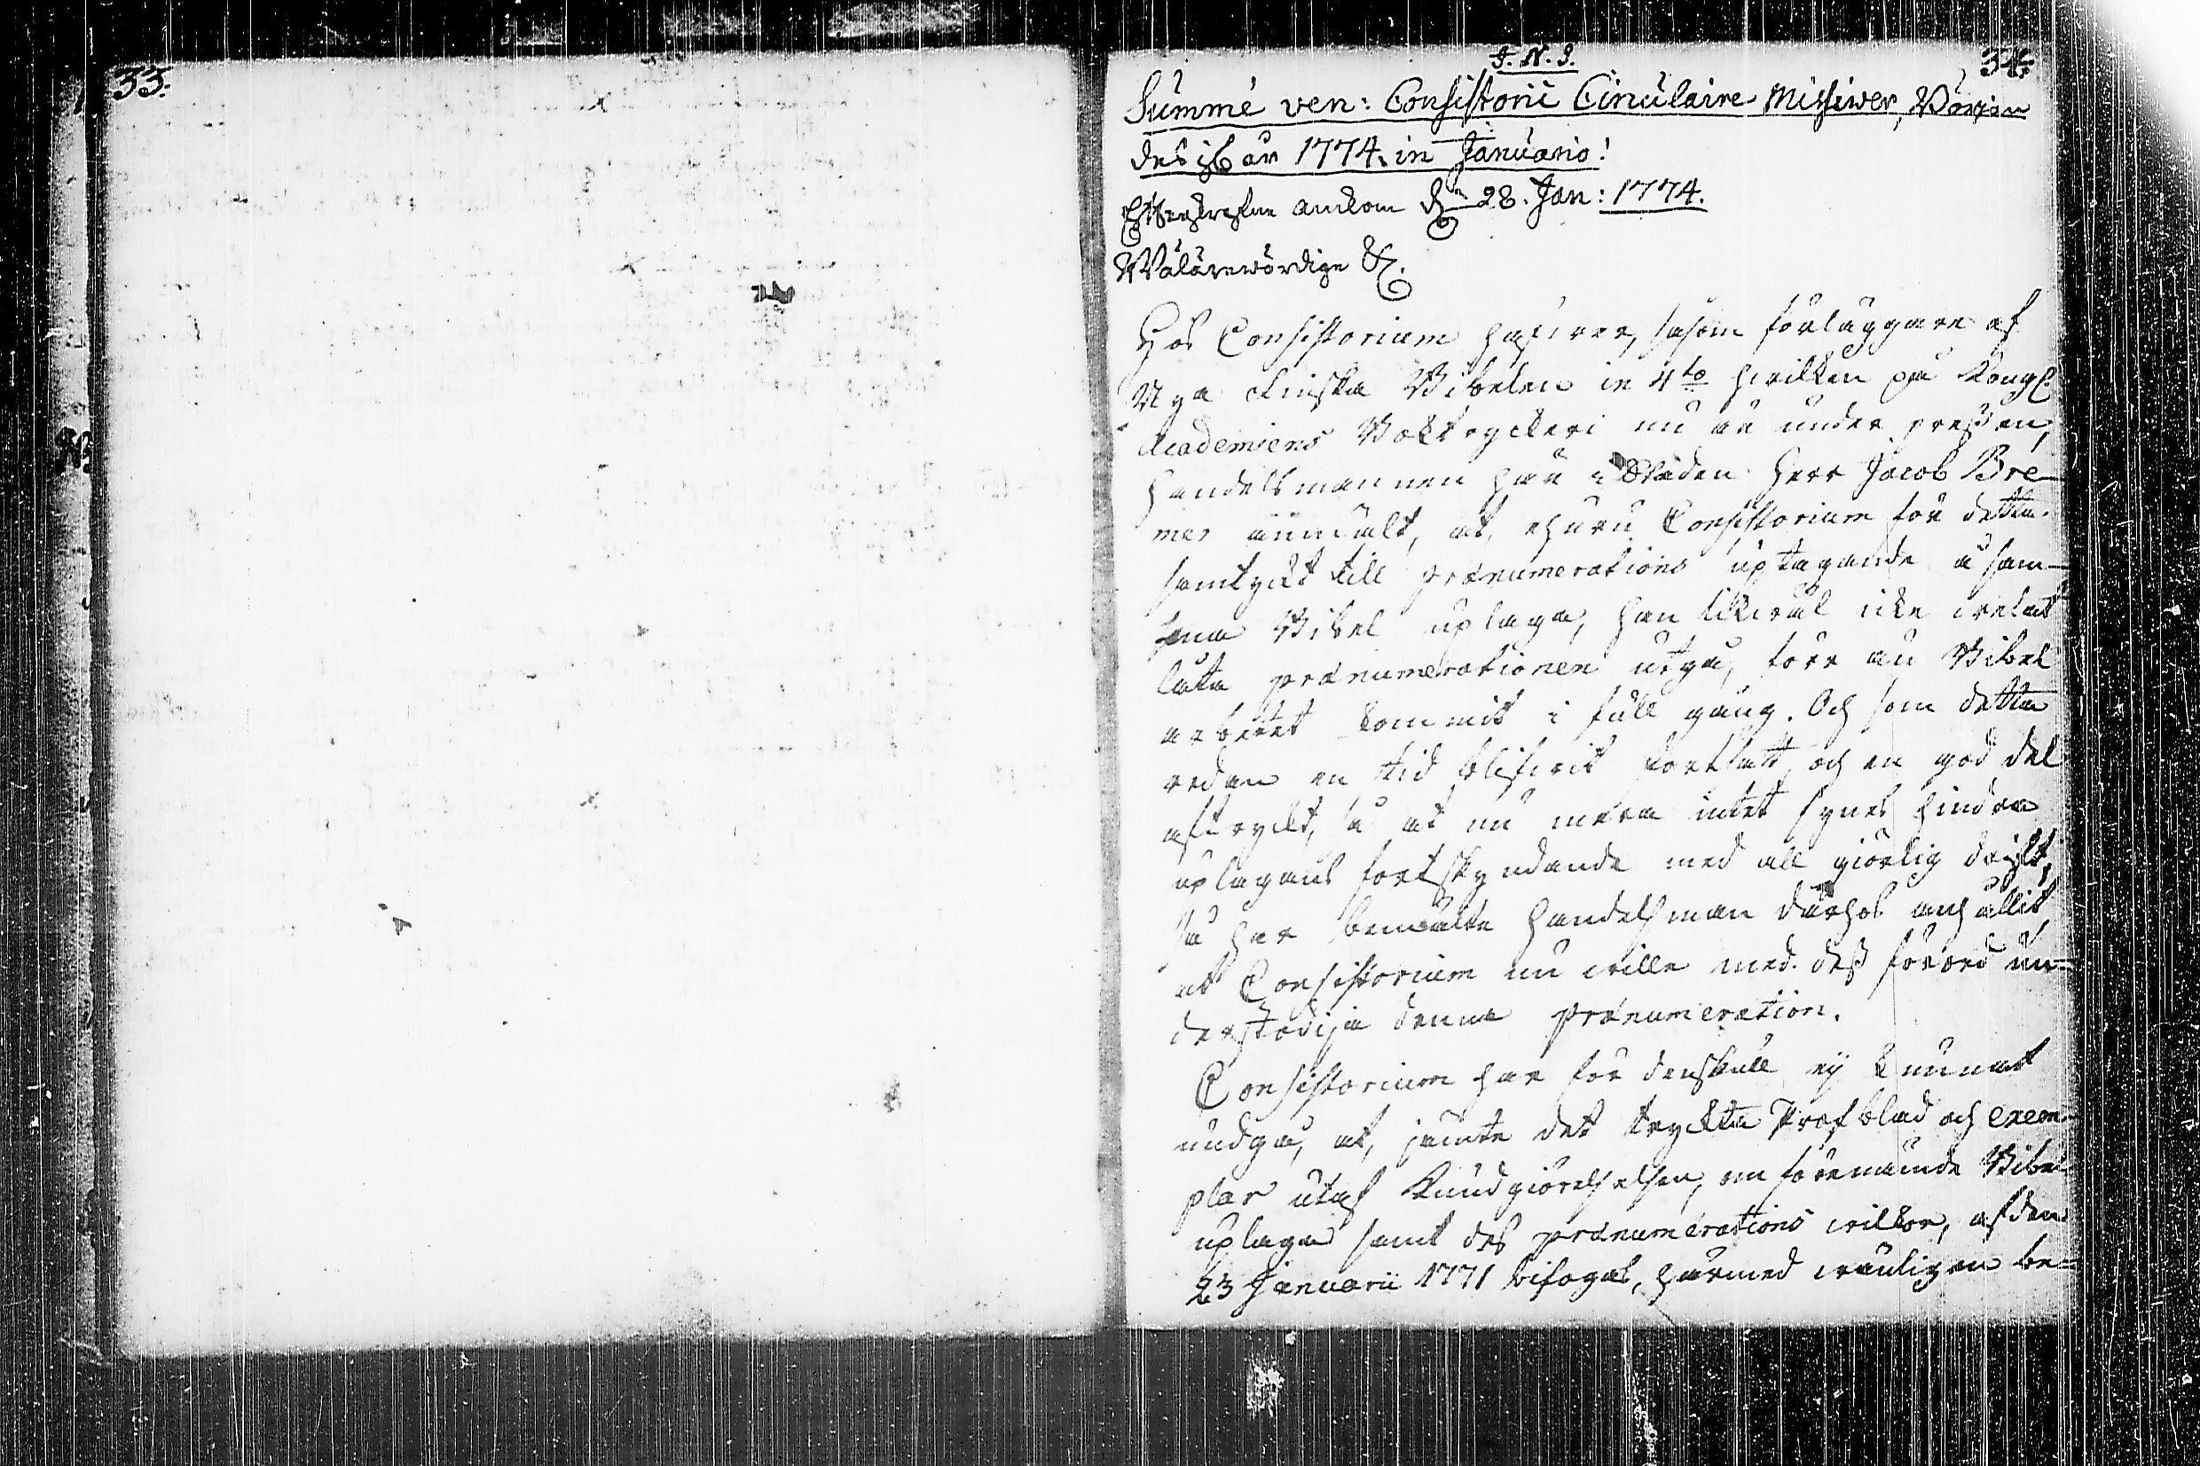 33.
J. N. J.
34.
Summé ven: Consistorii Circulaire Missiver, Början
des åhr 1774. in Januario!
Efterskrefne ankom d. 28. Jan: 1774.
Wälärewördige &c.
Hos Consistorium hafwer, såsom förläggare af
Nya Finska Bibelen in 4to hwilken på Kongl.
Academiens Boktryckeri nu är under pressen,
Handelsmannen här i Staden Herr Jacob Bre-
mer anmält, at, ehuru Consistorium för detta
samtyckt till prænumerations uptagande å sam-
ma Bibel uplaga, han likwäl icke welat
låta prænumerationen utgå, förr än Bibel
arbetet kommit i full gång. Och som detta
redan en tid blifwit fortsatt, och en god del
aftryckt, så at nu mera intet synes hindra
uplagans fortskyndande med all giörlig drift,
så har bemälte Handelsman därhos anhållit,
at Consistorium nu wille med dess förord un-
derstödja denna prænumeration.
Consistorium har för denskull ej kunnat
undgå, at, jämte det tryckta Prof blad och exem-
plar utaf Kundgiörelsen, om förenämnde Bibel
uplaga samt des prænumerations wilkor, af den
23 Januarii 1771 bifogas, härmed wänligen be-